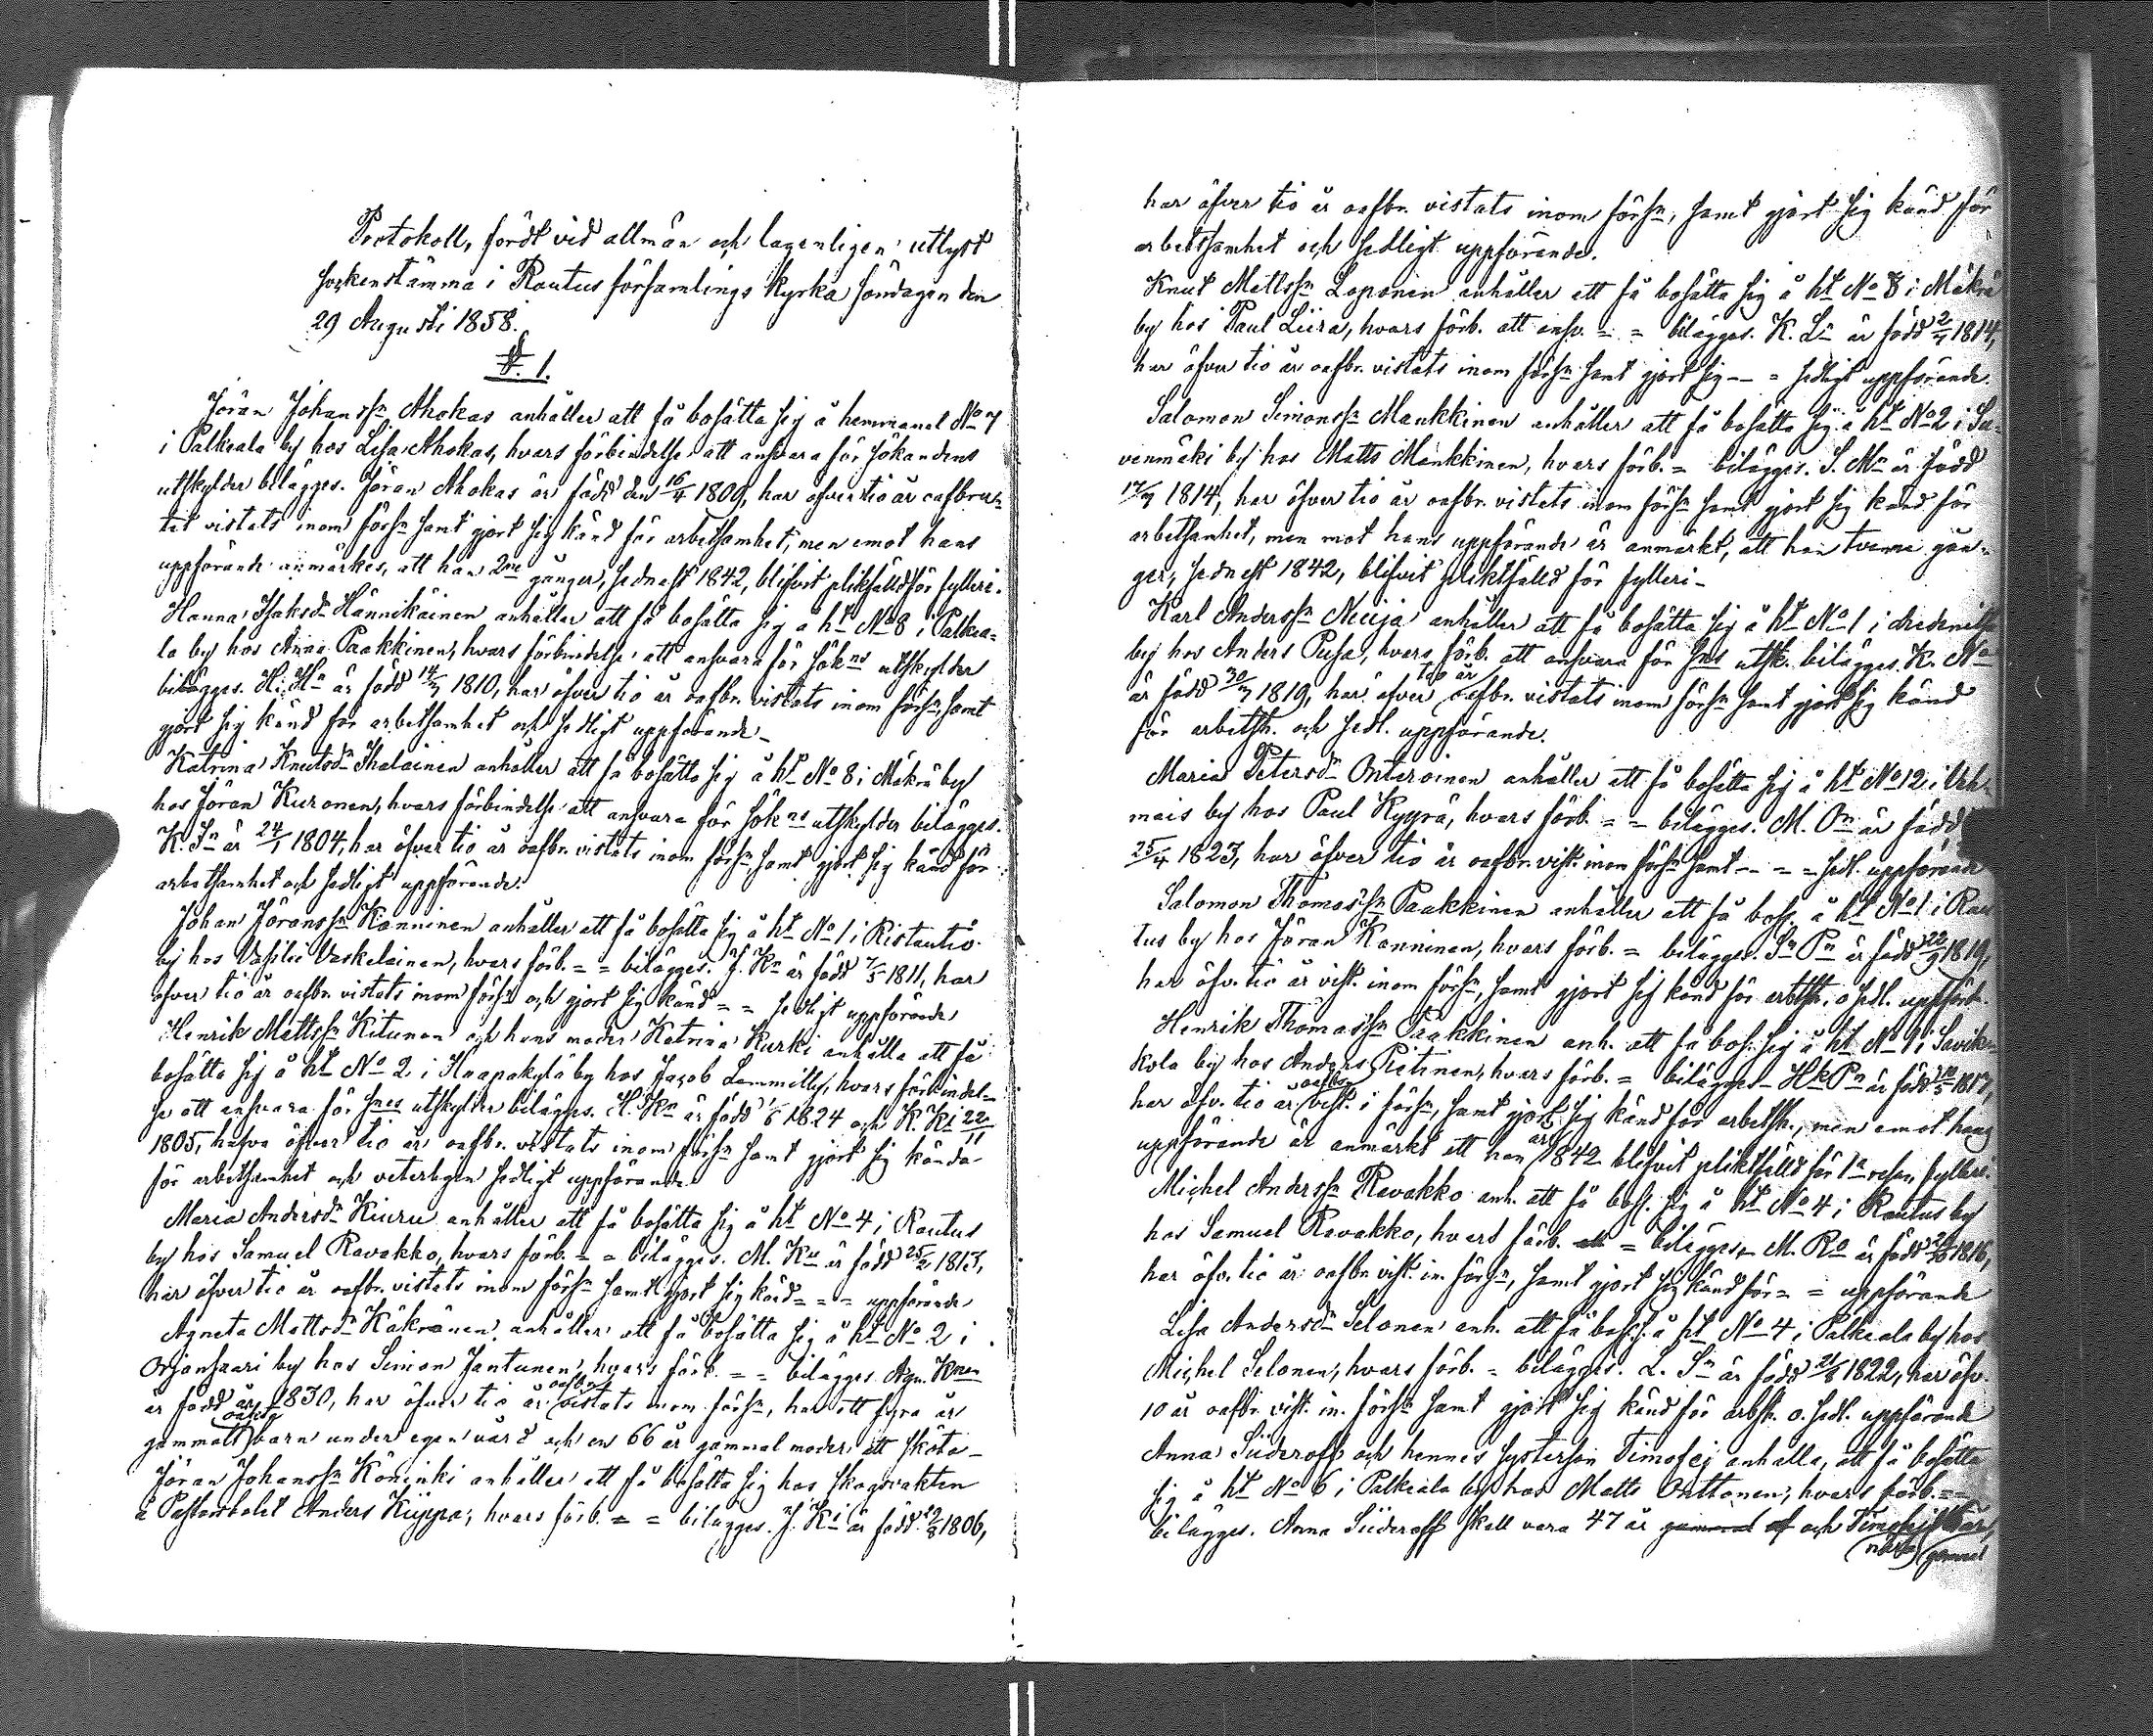 Protokoll, fördt vid allmän och lagenligen utlyst
sockenstämma i Rautus församlings kyrka söndagen den
29 Augusti 1858.
§. 1.
Jöran Johanssn Ahokas anhåller att få bosätta sig å hemmanet No 7
i Palkeala by hos Lisa Ahokas, hvars förbindelse att ansvara för sökandens
utskylder bilägges. Jöran Ahokas är född den 16/4 1809, har öfver tio år oafbru-
tet vistats inom försn samt gjort sig känd för arbetsamhet, men emot hans
uppförande anmärkes, att han 2ne gånger, sednast 1842, blifvit pliktfälld för fylleri.
Hanna Isaksdr Hännikäinen anhåller att få bosätta sig å ht No 8 i Palkea-
la by hos Anna Paakkinen, hvars förbindelse att ansvara för sökns utskylder
bilägges. H. Hn är född 14/7 1810, har öfver tio år oafbr. vistats inom försn, samt
gjort sig känd för arbetsamhet och sedligt uppförande_
Katrina Knutsdr Ihalainen anhåller att få bosätta sig å ht No 8 i Mäkrä by
hos Jöran Kuronen, hvars förbindelse att ansvara för sökns utskylder bilägges.
K. In är 24/1 1804, har öfver tio år oafbr. vistats inom försn samt gjort sig känd för
arbetsamhet och sedligt uppförande.
Johan Jöranssn Kanninen anhåller att få bosätta sig å ht No 1 i Ristautio
by hos Vasilei Vaskelainen, hvars förb. = = bilägges. J. Kn är född 7/5 1811, har
öfver tio år oafbr. vistats inom försn och gjort sig känd = = sedligt uppförande
Henrik Mattssn Kitunen och hans moder Katrina Kurki anhålla att få
bosätta sig å ht No 2 i Haapakylä by hos Jacob Lemmitty, hvars förbindel-
se att ansvara för snes utskylder bilägges. H. Kn är född 1/6 1824 och K. Ki 22/11
1805, hafva öfver tio år oafbr. vistats inom försn samt gjort sig kända
för arbetsamhet och veterligen sedligt uppförande.
Maria Andersdr Kiuru anhåller att få bosätta sig å ht No 4 i Rautus
by hos Samuel Ravakko, hvars förb. = = bilägges. M. Ku är född 25/2 1813,
har öfver tio år oafbr. vistats inom försn samt gjort sig känd = = = uppförande
Agneta Mattsdr Käkränen anhåller att få bosätta sig å ht No 2 i
Orjansaari by hos Simon Jantunen, hvars förb. = = bilägges. Agn. Knen
är född år 1830, har öfver tio år oafbr. vistats inom försn, har ett fyra år
gammalt oäkta barn under egen vård och en 66 år gammal moder att sköta_
Jöran JohanssnKöninki anhåller att få bosätta sig hos skogvakten
å Pastorbolet Anders Kiippa, hvars förb. = = bilägges. J. Ki är född 12/8 1806,
har öfver tio år oafbr. vistats inom försn, samt gjort sig känd för
arbetsamhet och sedligt uppförande.
Knut Mattssn Loponen anhåller att få bosätta sig å ht No 8 i Mäkrä
by hos Paul Liira, hvars förb. att ansv. = = bilägges. K. Ln är född 2/7 1814,
har öfver tio år oafbr. vistats inom försn samt gjort sig -- = sedligt uppförande.
Salomon Simonssn Maukkinen anhåller att få bosätta sig å ht No 2 i Su-
venmäki by hos Matts Maukkinen, hvars förb. = bilägges. S. Mn är född
17/7 1814, har öfver tio år oafbr. vistats inom försn samt gjort sig känd för
arbetsamhet, men mot hans uppförande är anmärkt, att han tvenne gån-
ger, sednast 1842, blifvit pliktfälld för fylleri_
Karl Anderssn Neeija anhåller att få bosätta sig å ht No 1 i
by hos Anders Pusa, hvars förb. att ansvara för sns utsk. bilägges. K. Na
är född 30/7 1819, har öfver tio år oafbr. vistats inom försn samt gjort sig känd
för arbetsh. och sedl. uppförande.
Maria Petersdr Onteroinen anhåller att få bosätta sig å ht No 12 i
mais by hos Paul Kyyrä, hvars förb. = = bilägges. M. On är född
25/4 1823, har öfver tio år oafbr. vist. inom försn samt -- = = sedl. uppförande
Salomon Thomassn Paakkinen anhåller att få bos. å ht No 1 i Rau
tus by hos Jöran Kanninen, hvars förb. = bilägges. Sn Pn är född 22/9 1819,
har öfv. tio år vist. inom försn, samt gjort sig känd för arbtsh. o sedl. uppför.
Henrik Thomassn Paakkinen anh. att få bos. sig å ht No 1 i Savik-
kola by hos Anders Pietinen, hvars förb. = bilägges_ Hk Pn är född 10/5 1817,
har öfv. tio år oafbr. vist. i försn, samt gjort sig känd för arbetsh., men emot hans
uppförande är anmärkt att han år 1842 blifvit pliktfälld för 1a resan fylleri.
Michel Anderssn Ravakko anh. att få bos. sig å ht No 4 i Rautus by
hos Samuel Ravakko, hvars förb. = bilägges_ M. Ro är född 1816,
har öfv. tio år oafbr. vist. in. försn, samt gjort sig känd för = = uppförande
Lisa Andersdr Selonen anh. att få bos. å ht No 4 i Palkeala by hos
Michel Selonen, hvars förb. = bilägges. L. Sn är född 21/8 1822, har öfv.
10 år oafbr. vist. in. försn samt gjort sig känd för arbsh. o. sedl. uppförande
Anna Siideroff och hennes systerson Timofej anhålla, att få bosätta
sig å ht No 6 i Palkeala by hos Matts Onttonen, hvars förb. = =
bilägges. Anna Siideroff skall vara 47 år gammal och Timofej
gammal